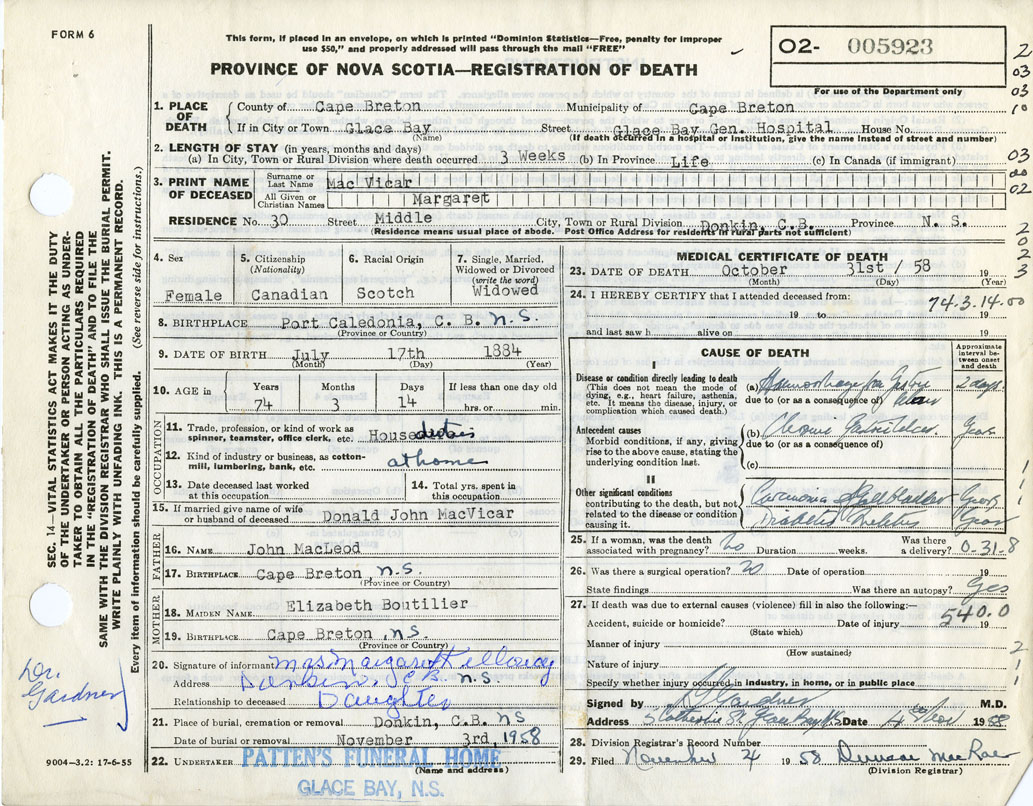 FORM 6
This form, if placed in an envelope, on which is printed "Dominion Statistics—Free, penalty for improper
use $50," and properly addressed will pass through the mail "FREE"
PROVINCE OF NOVA SCOTIA—REGISTRATION OF DEATH
O2- 005923
For use of the Department only
2
03
03
10
03
00
02
2
0
2
3
1. PLACE OF DEATH
County of Cape Breton Municipality of Cape Breton
If in City or Town Glace Bay Street Glace Bay Gen. Hospital House No.
(Name) (If death occurred in a hospital or institution, give the name instead of street and number)
2. LENGTH OF STAY (in years, months and days)
(a) In City, Town or Rural Division where death occurred 3 Weeks (b) In Province Life (c) In Canada (if immigrant)
3. PRINT NAME OF DECEASED
Surname or Last Name Mac Vicar
All Given or Christian Names Margaret
RESIDENCE No. 30 Street Middle City, Town or Rural Division Donkin, C.B. Province N. S.
(Residence means usual place of abode. Post Office Address for residents in rural parts not sufficient)
4. Sex Female
5. Citizenship (Nationality) Canadian
6. Racial Origin Scotch
7. Single, Married, Widowed or Divorced (write the word) Widowed
8. BIRTHPLACE Port Caledonia, C. B. N.S.
(Province or Country)
9. DATE OF BIRTH July 17th 1884
(Month) (Day) (Year)
10. AGE in Years 74 Months 3 Days 14 If less than one day old hrs. or min.
OCCUPATION
11. Trade, profession, or kind of work as spinner, teamster, office clerk, etc. House duties
12. Kind of industry or business, as cotton-mill, lumbering, bank, etc. at home
13. Date deceased last worked at this occupation
14. Total yrs. spent in this occupation
15. If married give name of wife or husband of deceased Donald John MacVicar
FATHER
16. NAME John MacLeod
17. BIRTHPLACE Cape Breton N.S.
(Province or Country)
MOTHER
18. MAIDEN NAME Elizabeth Boutilier
19. BIRTHPLACE Cape Breton , N.S.
(Province or Country)
20. Signature of informant Mrs Margaret Kelloway
Address Donkin, C.B. N.S.
Relationship to deceased Daughter
21. Place of burial, cremation or removal Donkin, C.B. NS
Date of burial or removal November 3rd, 1958
22. UNDERTAKER PATTEN'S FUNERAL HOME
(Name and address)
GLACE BAY, N.S.
9004—3.2: 17-6-55
MEDICAL CERTIFICATE OF DEATH
23. DATE OF DEATH October 31st / 58 19
(Month) (Day) (Year)
24. I HEREBY CERTIFY that I attended deceased from: 74.3.14.00
19 to 19
and last saw h alive on 19
CAUSE OF DEATH
Approximate interval between onset and death
I
Disease or condition directly leading to death
(This does not mean the mode of dying, e.g., heart failure, asthenia, etc. It means the disease, injury, or complication which caused death.)
(a) Haemorrhage from Gastric Ulcer 2 days
due to (or as a consequence of)
Antecedent causes
Morbid conditions, if any, giving rise to the above cause, stating the underlying condition last.
(b) Chronic
due to (or as a consequence of)
(c)
II
Other significant conditions
contributing to the death, but not related to the disease or condition causing it.
Carcinoma of Gall bladder
Diabetes Mellitus
1
1
1
25. If a woman, was the death associated with pregnancy? No Duration weeks. Was there a delivery? 0-31-8
26. Was there a surgical operation? No Date of operation 19
State findings Was there an autopsy? Yes
27. If death was due to external causes (violence) fill in also the following:—
540.0
Accident, suicide or homicide? Date of injury 19
(State which)
Manner of injury
(How sustained)
2
Nature of injury
1
Specify whether injury occurred in industry, in home, or in public place
Signed by Gardner M.D.
Address S Catherine St Glace Bay NS Date 4 Nov 1958
28. Division Registrar's Record Number
29. Filed November 4 1958 Duncan MacRae
(Division Registrar)
SEC. 14—VITAL STATISTICS ACT MAKES IT THE DUTY
OF THE UNDERTAKER OR PERSON ACTING AS UNDER-
TAKER TO OBTAIN ALL THE PARTICULARS REQUIRED
IN THE "REGISTRATION OF DEATH" AND TO FILE THE
SAME WITH THE DIVISION REGISTRAR WHO SHALL ISSUE THE BURIAL PERMIT.
WRITE PLAINLY WITH UNFADING INK. THIS IS A PERMANENT RECORD.
Every item of information should be carefully supplied. (See reverse side for instructions.)
Dr.
Gardner